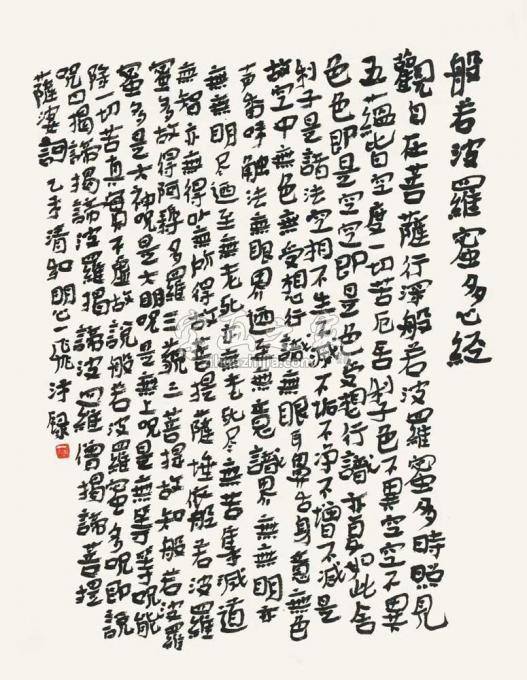 般若波羅蜜多心經
觀自在菩薩行深般若波羅蜜多時照見
五蘊皆空度一切苦厄舍利子色不異空空不異
色色即是空空即是色受想行識亦復如此舍
利子是諸法空相不生不滅不垢不淨不增不減是
故空中無色無受想行識無眼耳鼻舌身意無色
声香味觸法無眼界迺至無意識界無無明亦
無無明尽迺至無老死亦無老死尽無苦集滅道
無智亦無得以無所得故菩提薩埵依般若波羅
蜜多故得阿耨多羅三藐三菩提故知般若波羅
蜜多是大神呪是大明呪是無上呪是無等等呪能
除一切苦真實不虛故說般若波羅蜜多呪即說
呪曰揭諦揭諦波羅揭諦波羅僧揭諦菩提
薩婆訶 乙未清和明心一飛 錄